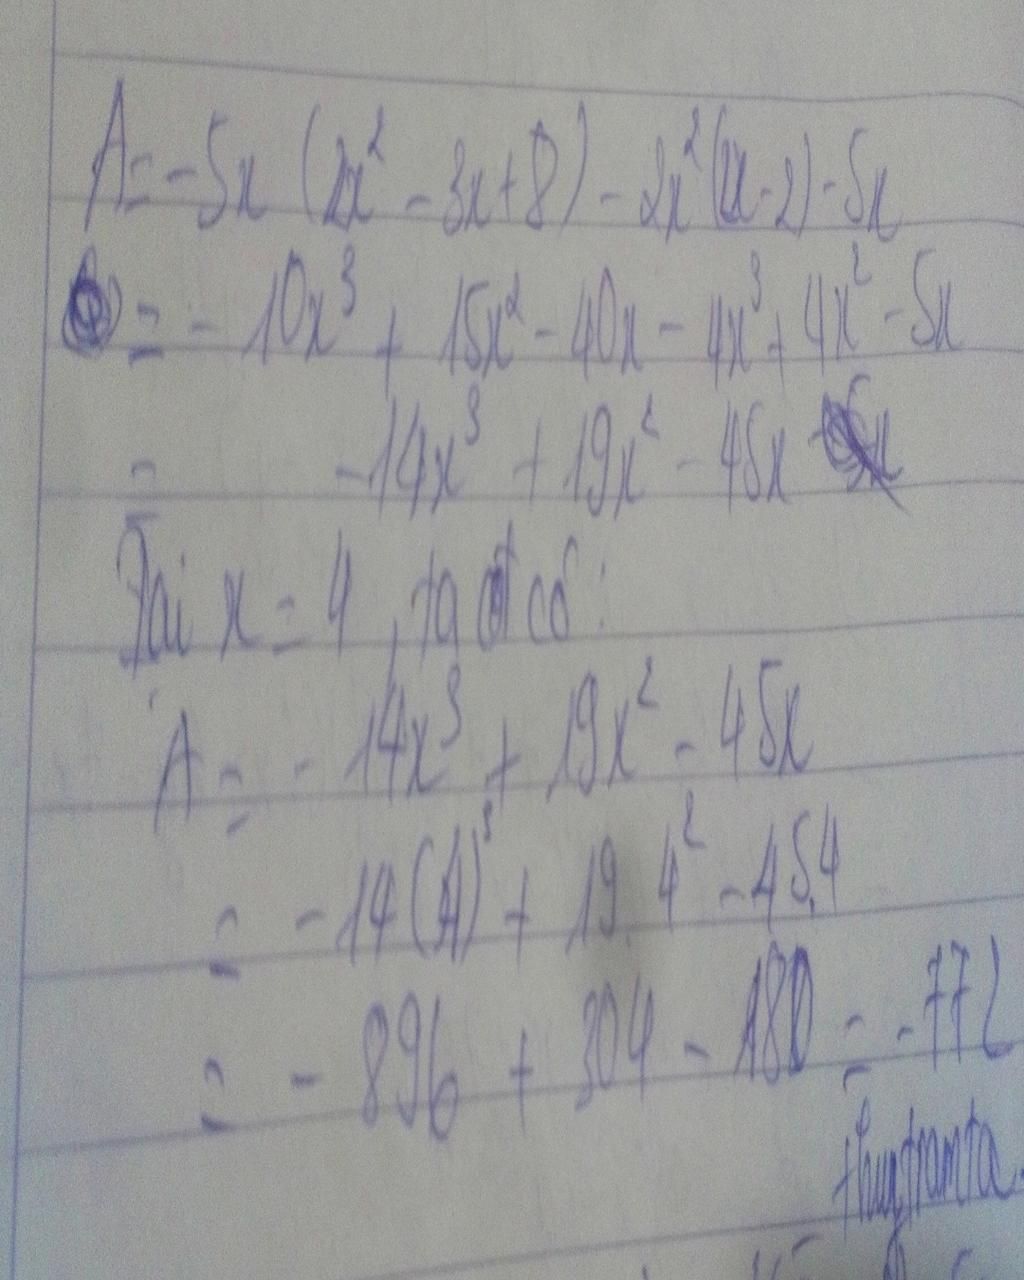 A = -5x (2x² - 3x + 8) - 2x² (2x - 2) - 5x
= - 10x³ + 15x² - 40x - 4x³ + 4x² - 5x
= -14x³ + 19x² - 45x
Tại x = 4, ta có:
A = - 14x³ + 19x² - 45x
= -14(4)³ + 19.4² - 45.4
= - 896 + 304 - 180 = -772
thuytramta